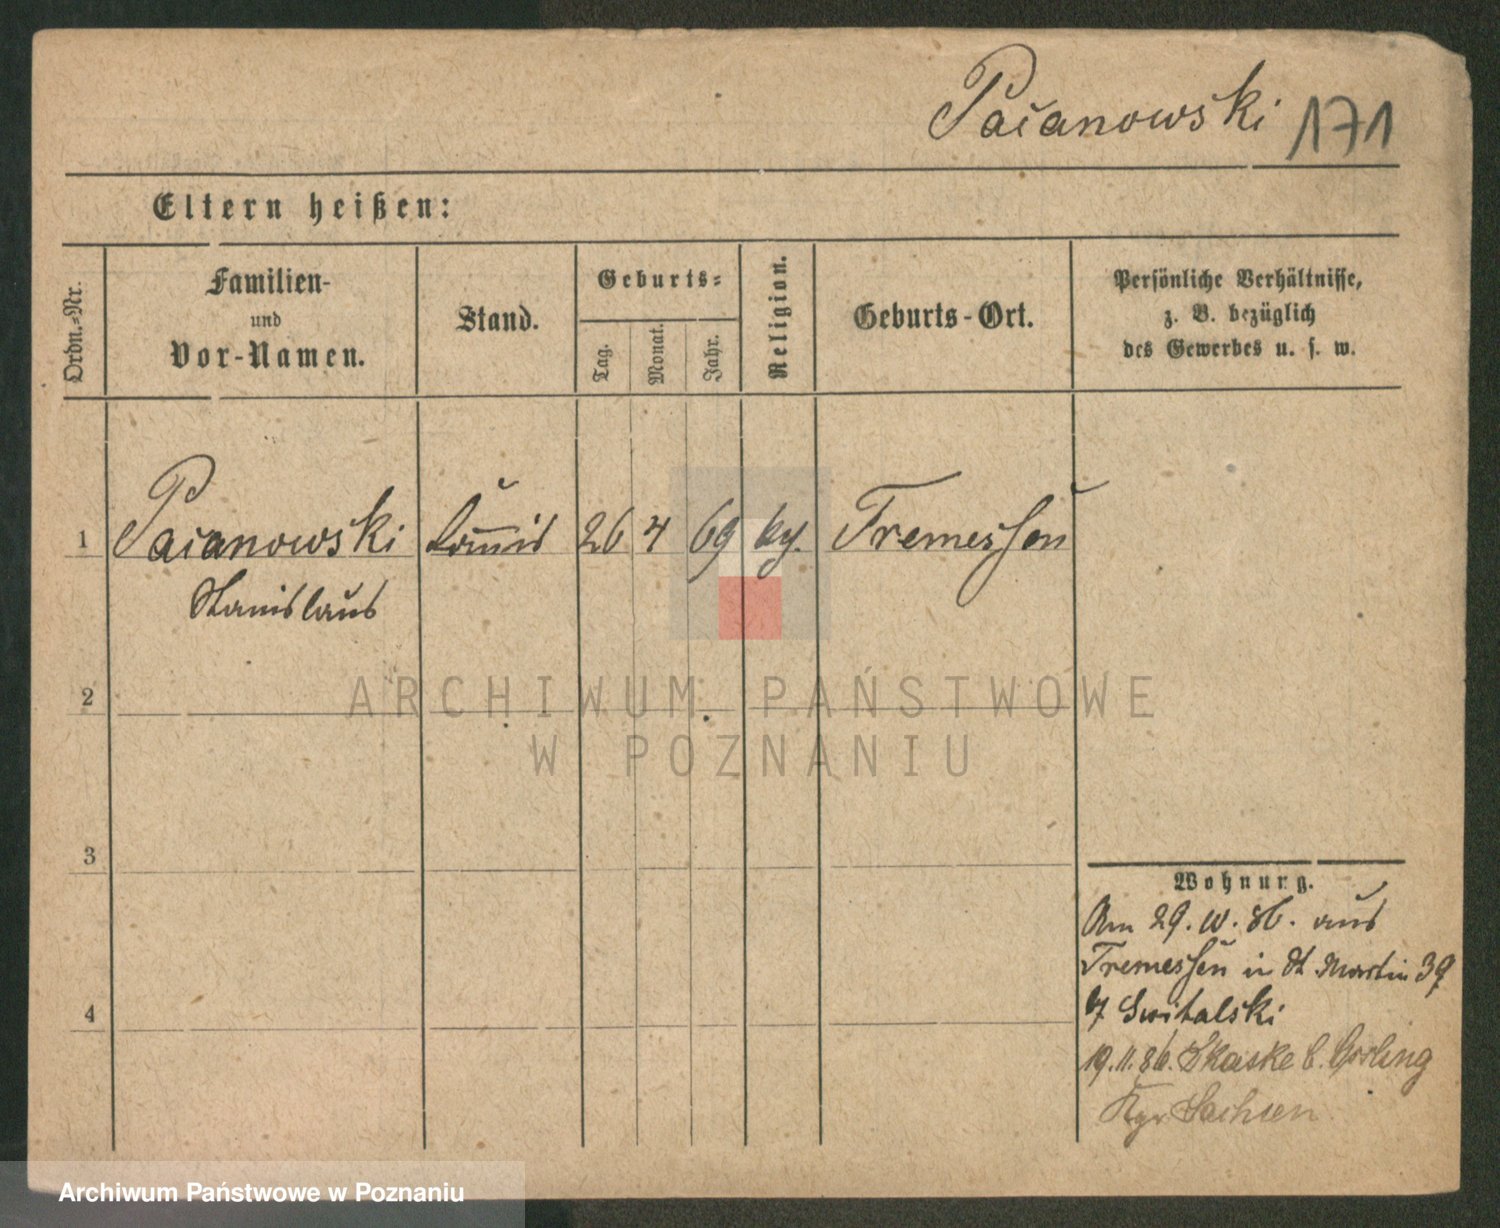 Paianowski 171
Eltern heißen:
Ordn.=Nr.
Familien-
und
Vor-Namen.
Stand.
Geburts=
Tag.
Monat.
Jahr.
Religion.
Geburts-Ort.
Persönliche Verhältnisse,
z. B. bezüglich
des Gewerbes u. s. w.
1 Paianowski 26 4 69 Tremessen
Stanislaus
2
3
4
Wohnung.
Am 29. 10. 86. aus
Tremessen in St Martin 39
Switalski
19.11.86. Skaske b.
Kgr Sachsen
ARCHIWUM PAŃSTWOWE
W POZNANIU
Archiwum Państwowe w Poznaniu